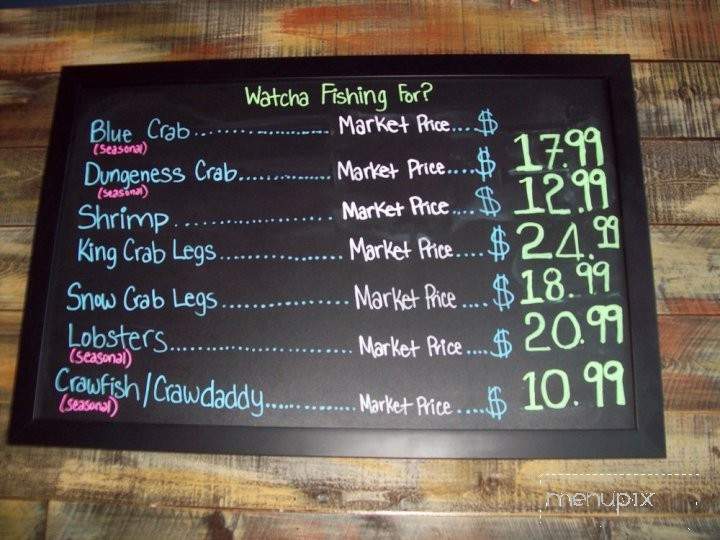 Watcha Fishing For?
Blue Crab.................... Market Price....$
(seasonal)
Dungeness Crab.............. Market Price....$ 17.99
(seasonal)
Shrimp...................... Market Price....$ 12.99
King Crab Legs.................. Market Price....$ 24.99
Snow Crab Legs.................. Market Price....$ 18.99
Lobsters......................... Market Price....$ 20.99
(seasonal)
Crawfish/Crawdaddy.............. Market Price....$ 10.99
(seasonal)
menupix